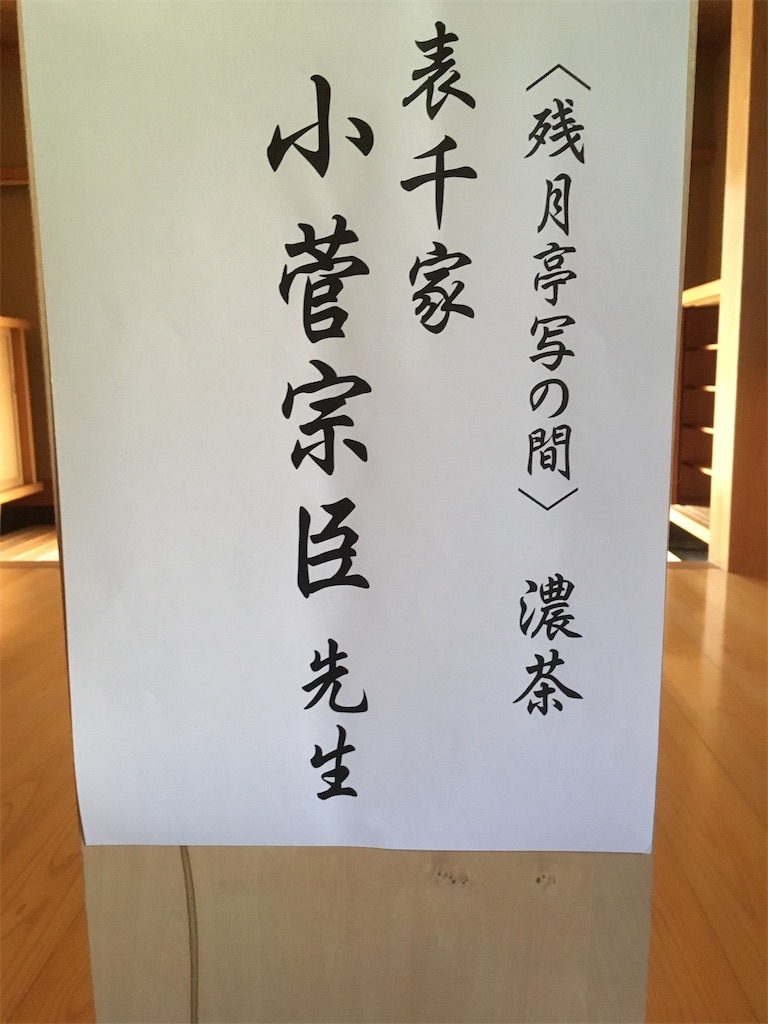 〈残月亭写の間〉 濃茶
表千家
小菅宗臣 先生